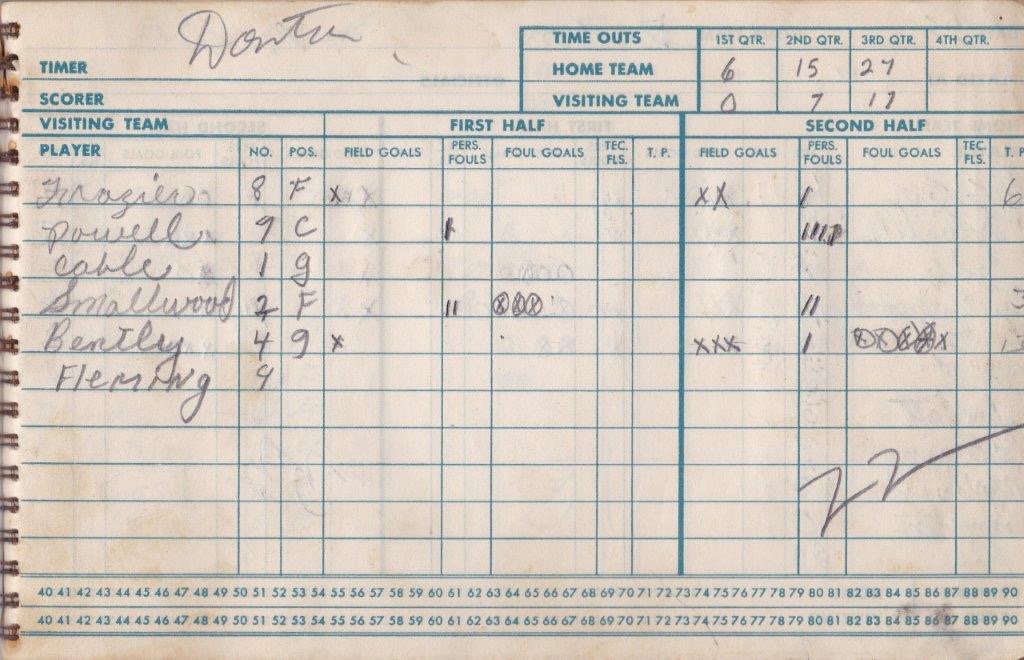 TIME OUTS 1ST QTR. 2ND QTR. 3RD QTR. 4TH QTR.
TIMER
HOME TEAM 6 15 27
SCORER
VISITING TEAM 0 7 17
VISITING TEAM FIRST HALF SECOND HALF
PLAYER NO. POS. FIELD GOALS PERS. FOULS FOUL GOALS TEC. FLS. T. P. FIELD GOALS PERS. FOULS FOUL GOALS TEC. FLS. T. P
Frazier 8 F X XX I 6
Powell 9 C I IIIII
Cable 1 g
Smallwood 2 F II XXX II 3
Bently 4 g X XXX I XXXXX 13
Fleming 4
22
40 41 42 43 44 45 46 47 48 49 50 51 52 53 54 55 56 57 58 59 60 61 62 63 64 65 66 67 68 69 70 71 72 73 74 75 76 77 78 79 80 81 82 83 84 85 86 87 88 89 90
40 41 42 43 44 45 46 47 48 49 50 51 52 53 54 55 56 57 58 59 60 61 62 63 64 65 66 67 68 69 70 71 72 73 74 75 76 77 78 79 80 81 82 83 84 85 86 87 88 89 90